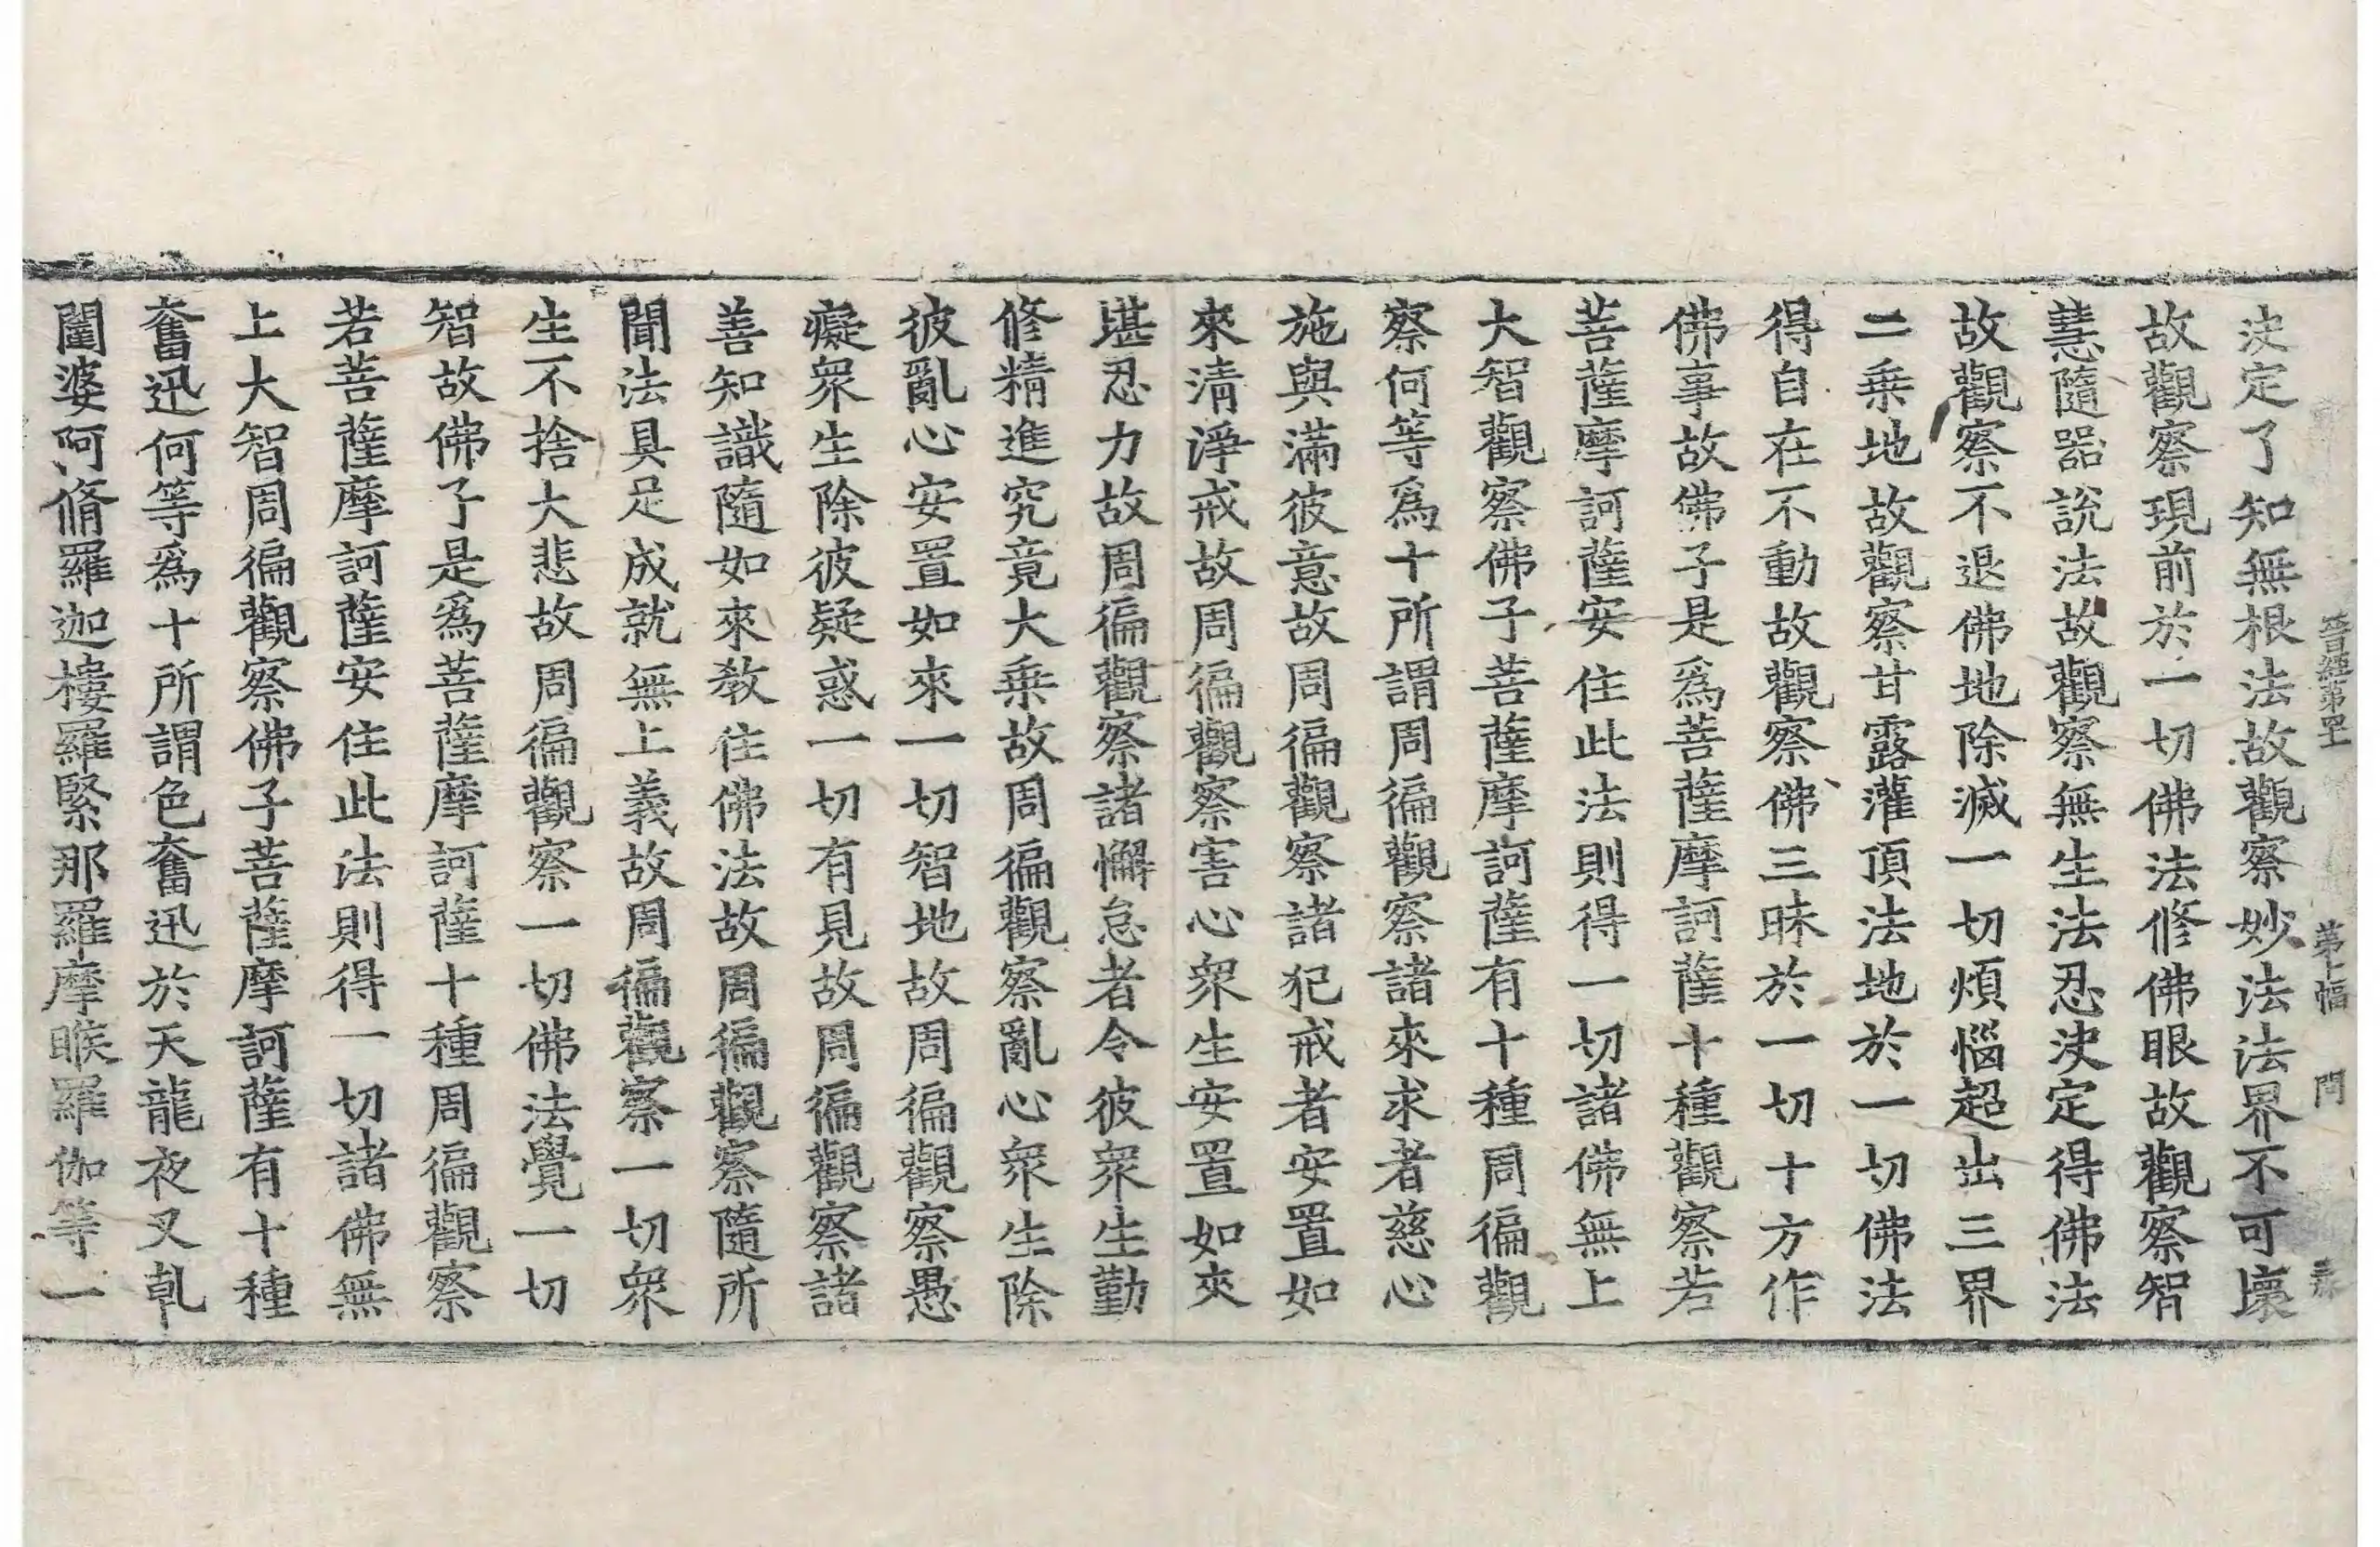 晉經第四十一 第十幅 問 素
决定了知無根法故觀察妙法法界不可壞
故觀察現前於一切佛法修佛眼故觀察智
慧隨器說法故觀察無生法忍决定得佛法
故觀察不退佛地除滅一切煩惱超出三界
二乗地故觀察甘露灌頂法地於一切佛法
得自在不動故觀察佛三昧於一切十方作
佛事故佛子是爲菩薩摩訶薩十種觀察若
菩薩摩訶薩安住此法則得一切諸佛無上
大智觀察佛子菩薩摩訶薩有十種周徧觀
察何等爲十所謂周徧觀察諸來求者慈心
施與滿彼意故周徧觀察諸犯戒者安置如
來清淨戒故周徧觀察害心衆生安置如來
堪忍力故周徧觀察諸懈怠者令彼衆生勤
修精進究竟大乗故周徧觀察亂心衆生除
彼亂心安置如來一切智地故周徧觀察愚
癡衆生除彼疑惑一切有見故周徧觀察諸
善知識隨如來教住佛法故周徧觀察隨所
聞法具足成就無上義故周徧觀察一切衆
生不捨大悲故周徧觀察一切佛法覺一切
智故佛子是爲菩薩摩訶薩十種周徧觀察
若菩薩摩訶薩安住此法則得一切諸佛無
上大智周徧觀察佛子菩薩摩訶薩有十種
奮迅何等爲十所謂色奮迅於天龍夜叉乹
闥婆阿脩羅迦樓羅緊那羅摩睺羅伽等一